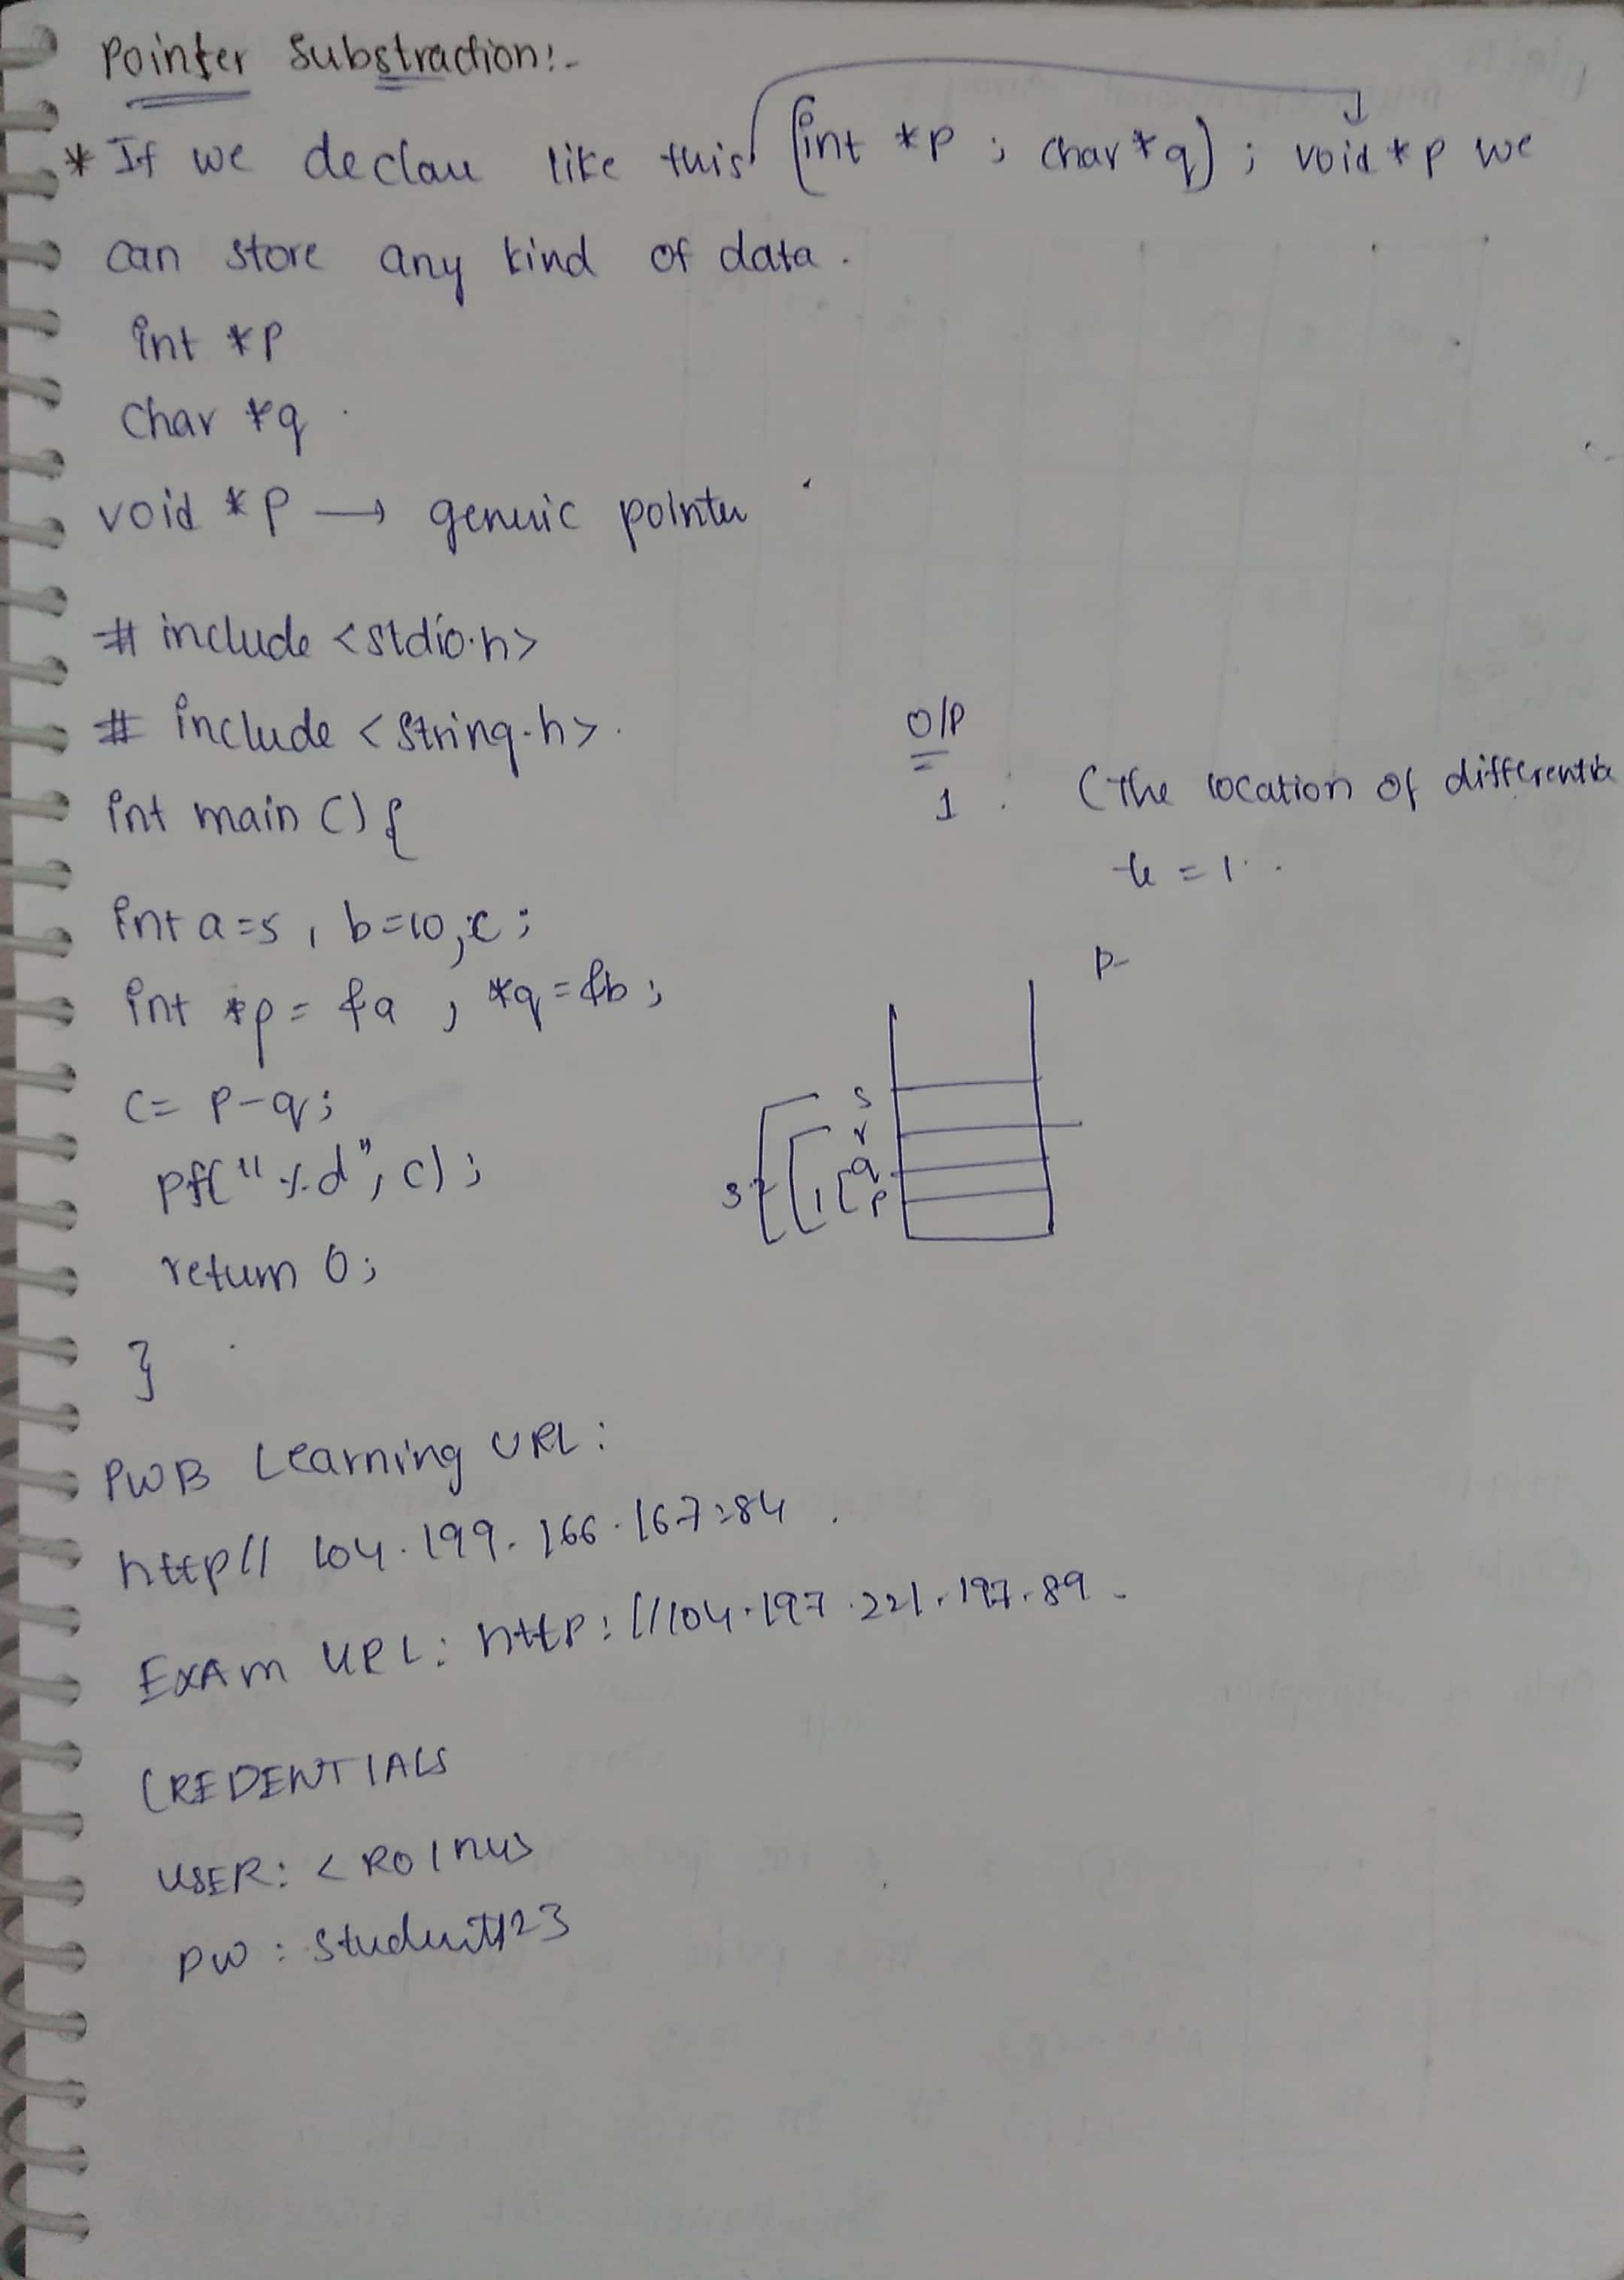 Pointer Substraction:-
* If we declare like this (int *p ; char *q) ; void *p we
can store any kind of data.
int *p
char *q
void *p → generic pointer
# include <stdio.h>
# include <string.h>.
int main () {
O/P
1. (The location of
= 1.
int a=5, b=10, c;
int *p = &a, *q = &b;
P-
c = p-q;
pf("%d", c);
return 0;
}
s
r
q
p
3
1
PWB Learning URL:
http// 104.199.166.167:84.
EXAM URL: http://104.197.221.197.89.
CREDENTIALS
USER: <Rolnu>
PW : student123